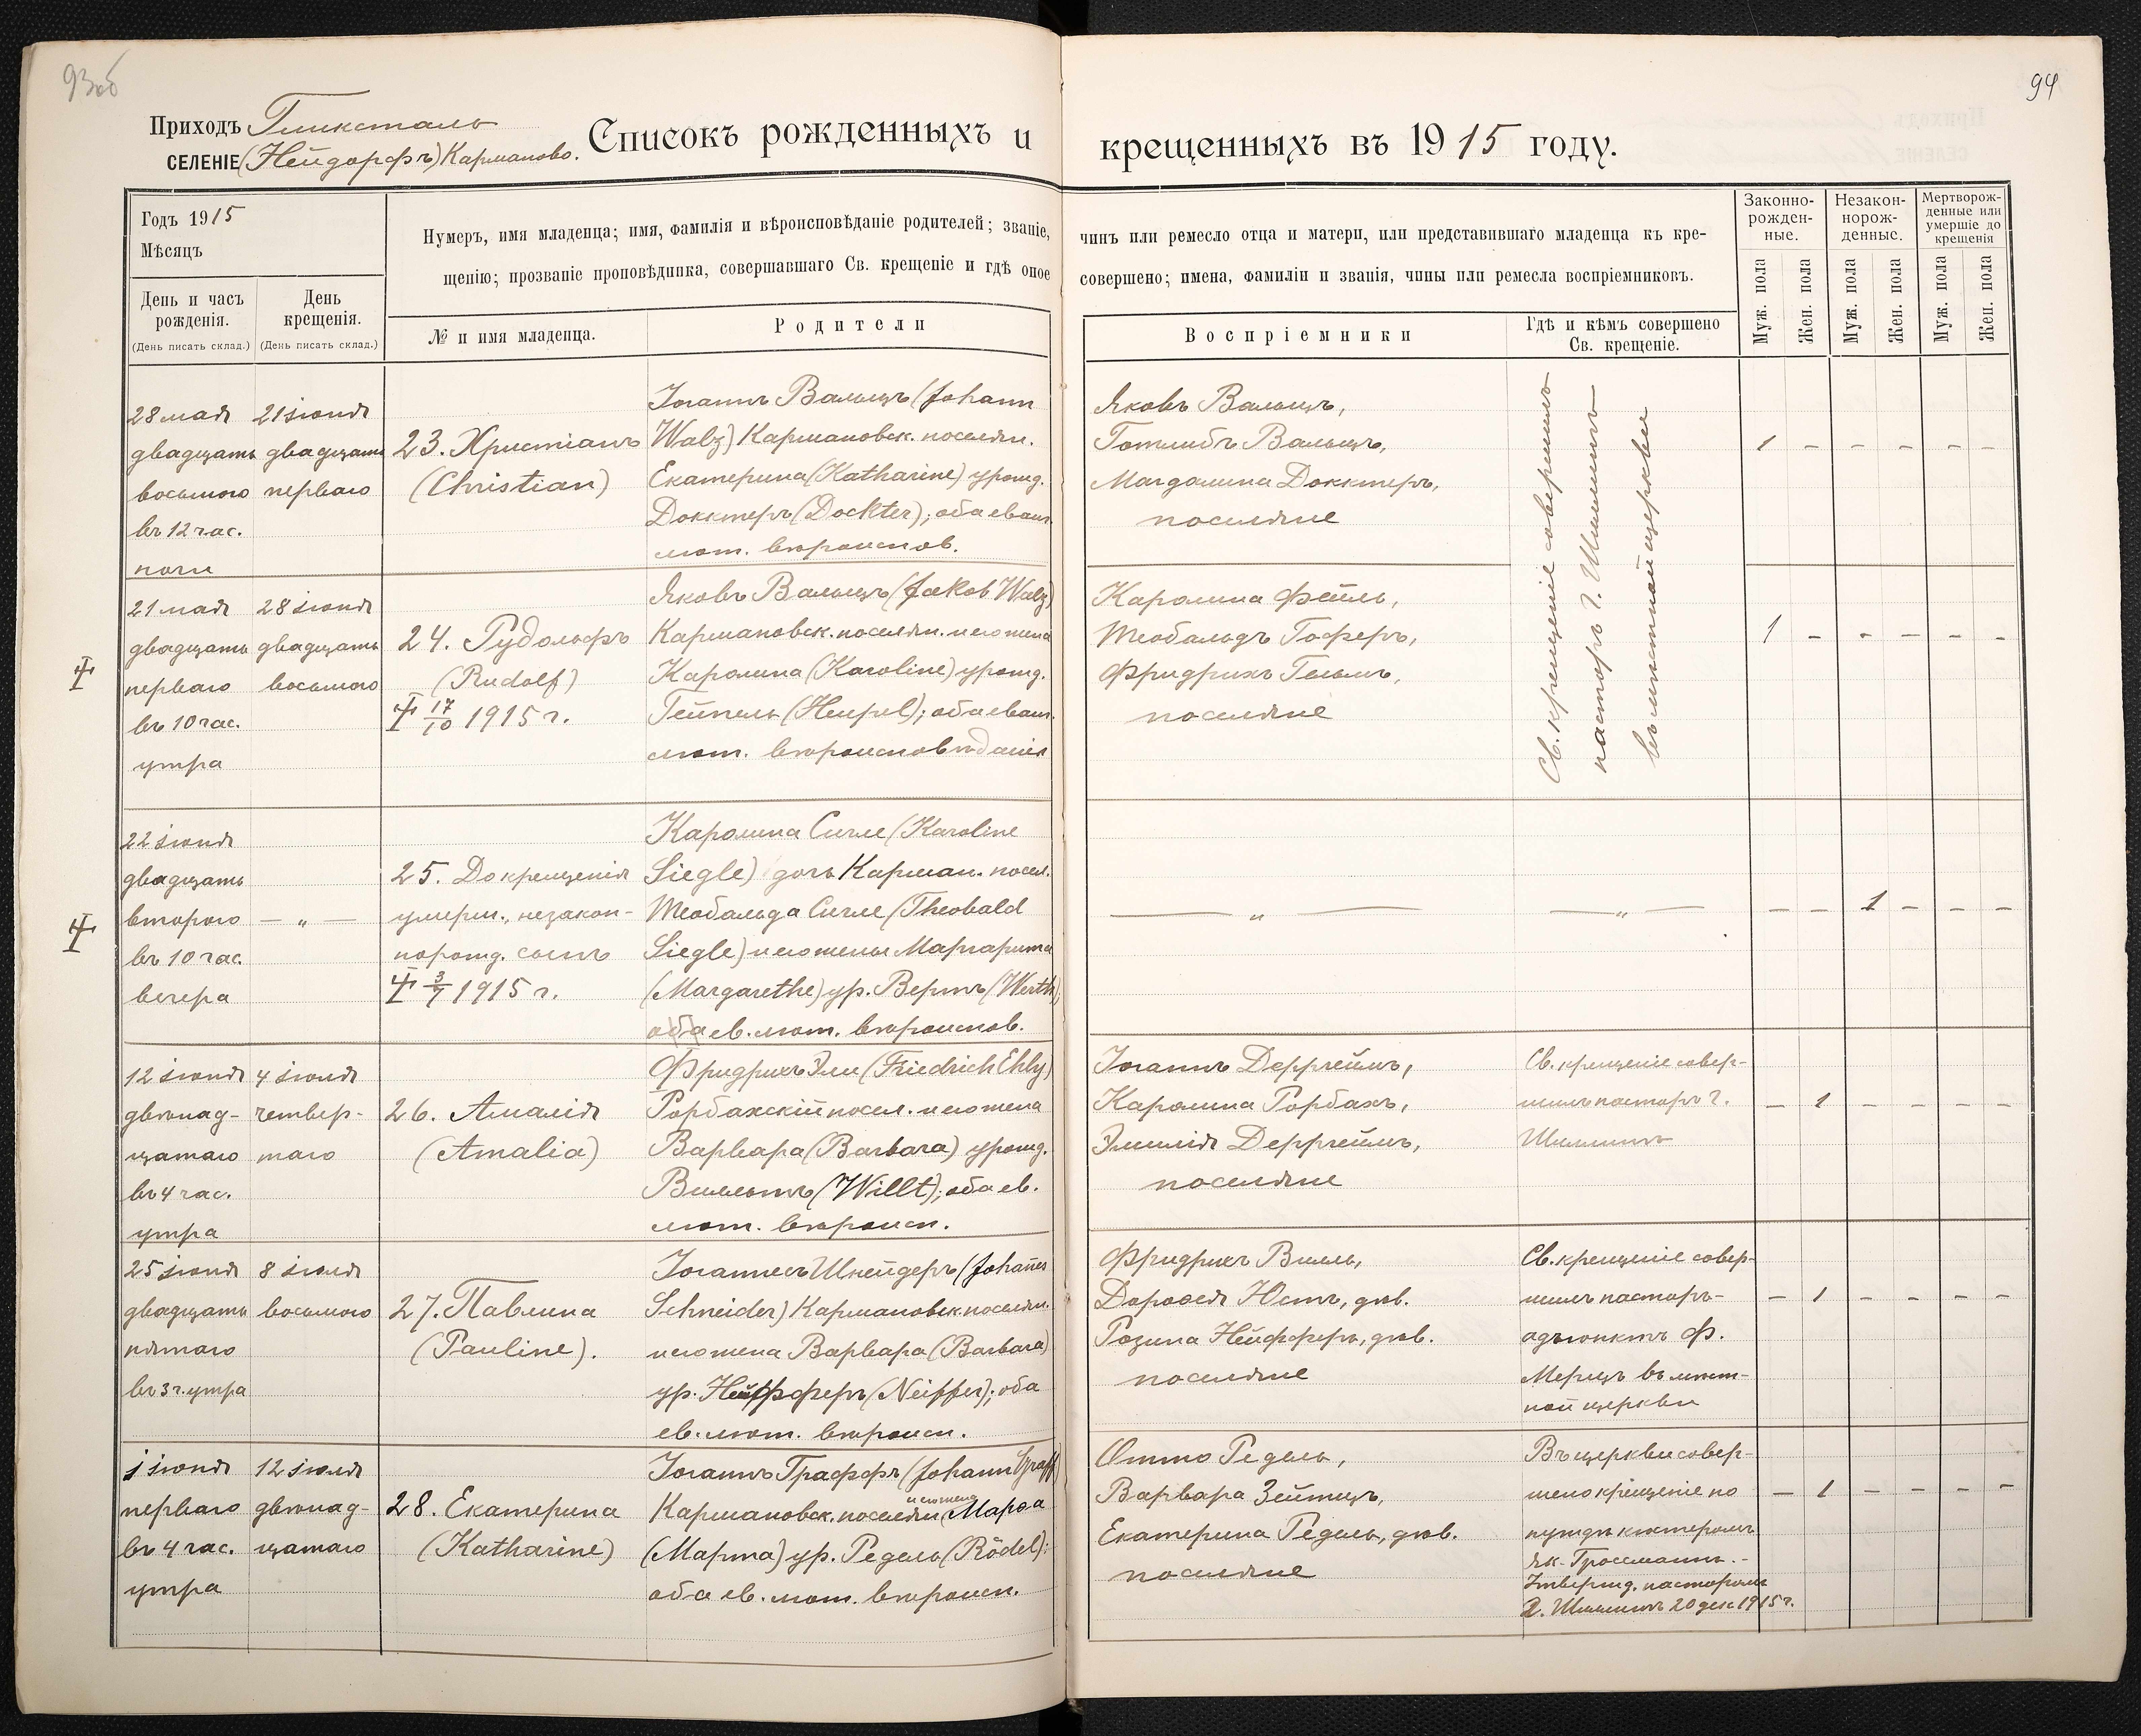 93об
94
Приходъ Глюксталь
СЕЛЕНІЕ (Нейдорфъ) Карманово.
Списокъ рожденныхъ и крещенныхъ въ 1915 году.
Годъ 1915
Мѣсяцъ
День и часъ рожденія.
(День писать склад.)
День крещенія.
(День писать склад.)
Нумеръ, имя младенца; имя, фамилія и вѣроисповѣданіе родителей; званіе, чинъ или ремесло отца и матери, или представившаго младенца къ кре-
щенію; прозваніе проповѣдника, совершавшаго Св. крещеніе и гдѣ оное совершено; имена, фамиліи и званія, чины или ремесла воспріемниковъ.
№ и имя младенца.
Родители
Воспріемники
Гдѣ и кѣмъ совершено
Св. крещеніе.
Законно-
рожден-
ные.
Незакон-
норож-
денные.
Мертворож-
денные или
умершіе до
крещенія
Муж. пола
Жен. пола
Муж. пола
Жен. пола
Муж. пола
Жен. пола
28 мая
двадцать
восьмого
въ 12 час.
ночи
21 іюня
двадцать
перваго
23. Христіанъ
(Christian)
Іоганнъ Вальцъ (Johann
Walz) Кармановск. поселян.
Екатерина (Katharine) урожд.
Доктеръ (Dockter); оба еванг.
лют. вѣроиспов.
Яковъ Вальцъ,
Готлибъ Вальцъ,
Магдалина Доктеръ,
поселяне
Св. крещеніе совершилъ
пасторъ Г. Шиллингъ
въ мѣстной церкви
1 – – – – –
21 мая
двадцать
перваго
въ 10 час.
утра
28 іюня
двадцать
восьмого
24. Рудольфъ
(Rudolf)
17/10 1915 г.
Яковъ Вальцъ (Jakob Walz)
Кармановск. поселян. и его жена
Каролина (Karoline) урожд.
Гейпель (Heupel); оба еванг.
лют. вѣроисповѣданія
Каролина Фетль,
Теобальдъ Гоферъ,
Фридрихъ Гельмъ,
поселяне
1 – – – – –
22 іюня
двадцать
второго
въ 10 час.
вечера
— „ —
25. До крещенія
умерш., незакон-
норожд. сынъ
3/7 1915 г.
Каролина Сигле (Karoline
Siegle) дочь Карман. посел.
Теобальда Сигле (Theobald
Siegle) и его жены Маргарита
(Margarethe) ур. Вертъ (Werth);
оба ев. лют. вѣроиспов.
— „ —
— „ —
– – 1 – – –
12 іюня
двѣнад-
цатаго
въ 4 час.
утра
4 іюля
четвер-
таго
26. Амалія
(Amalia)
Фридрихъ Эли (Friedrich Ehly)
Рорбахскій посел. и его жена
Варвара (Barbara) урожд.
Вилльтъ (Willt); оба ев.
лют. вѣроисп.
Іоганнъ Дерргеймъ,
Каролина Рорбахъ,
Эмилія Дерргеймъ,
поселяне
Св. крещеніе совер-
шилъ пасторъ Г.
Шиллингъ
– 1 – – – –
25 іюня
двадцать
пятаго
въ 3 г. утра
8 іюля
восьмого
27. Павлина
(Pauline).
Іоганнесъ Шнейдеръ (Johannes
Schneider) Кармановск. поселян.
и его жена Варвара (Barbara)
ур. Нейфферъ (Neiffer); оба
ев. лют. вѣроисп.
Фридрихъ Вилль,
Доротея Юстъ, дѣв.
Розина Нейфферъ, дѣв.
поселяне
Св. крещеніе совер-
шилъ пасторъ-
адъюнктъ Ф.
Мерцъ въ мѣст-
ной церкви
– 1 – – – –
1 іюня
перваго
въ 4 час.
утра
12 іюля
двѣнад-
цатаго
28. Екатерина
(Katharine)
Іоганнъ Граффъ (Johann Graff)
Кармановск. поселян. и его жена Марѳа
(Марта) ур. Редель (Rödel);
оба ев. лют. вѣроисп.
Отто Редель,
Варвара Зейтцъ,
Екатерина Редель, дѣв.
поселяне
Въ церкви совер-
шено крещеніе по
нуждѣ кистеромъ
Як. Гроссманнъ. -
Утвержд. пасторомъ
Г. Шиллингъ 20 дек. 1915 г.
– 1 – – – –